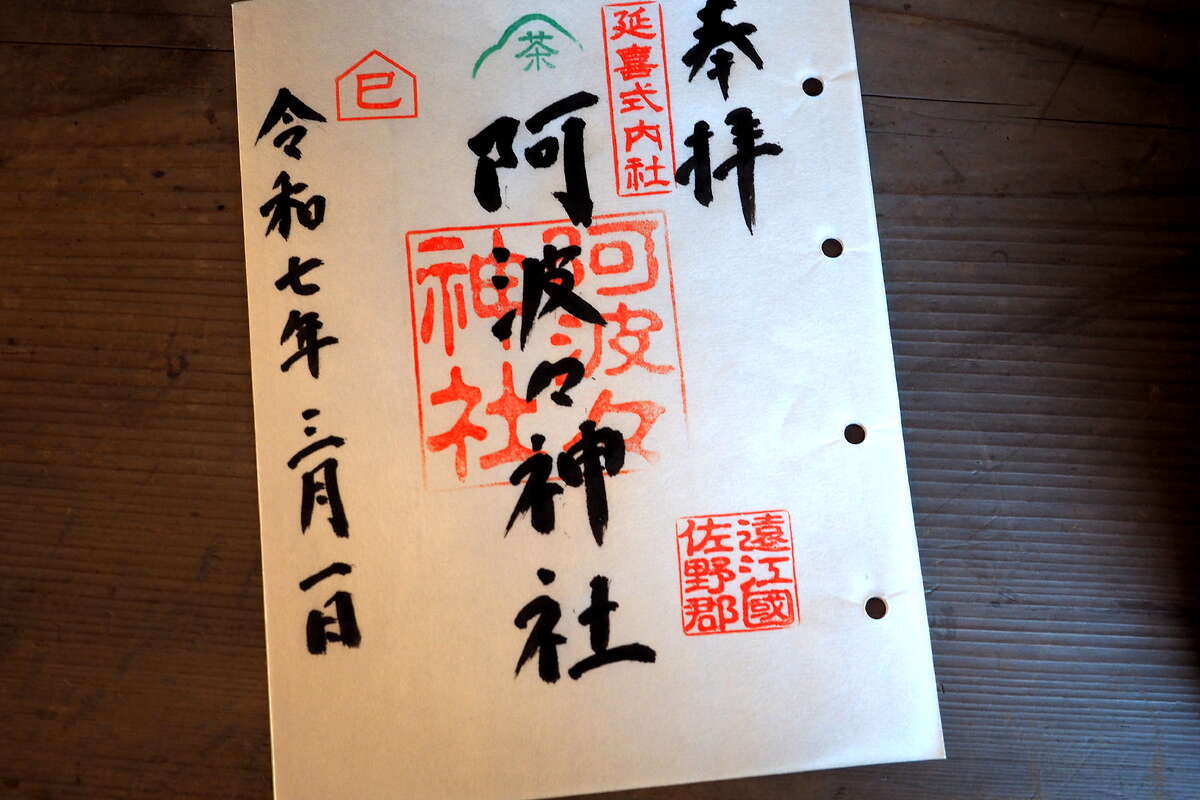 奉拝
延喜式内社
遠江國
佐野郡
茶
阿波々神社
阿波々
神社
巳
令和七年三月一日